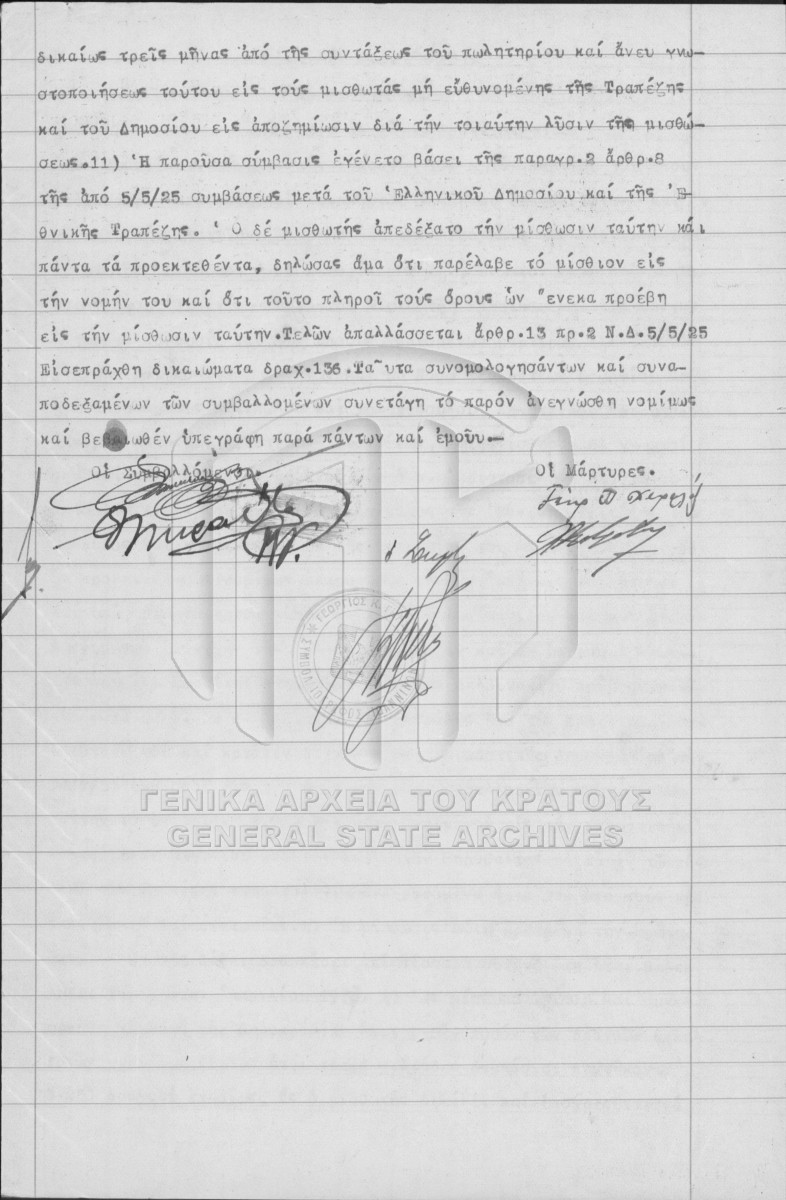 δικαίως τρεῖς μῆνας ἀπό τῆς συντάξεως τοῦ πωλητηρίου καί ἄνευ γνω-
στοποιήσεως τούτου εἰς τούς μισθωτάς μή εὐθυνομένης τῆς Τραπέζης
καί τοῦ Δημοσίου εἰς ἀποζημίωσιν διά τήν τοιαύτην λῦσιν τῆς μισθώ-
σεως.11) Ἡ παροῦσα σύμβασις ἐγένετο βάσει τῆς παραγρ.2 ἄρθρ.8
τῆς ἀπό 5/5/25 συμβάσεως μετά τοῦ Ἑλληνικοῦ Δημοσίου καί τῆς Ἐ-
θνικῆς Τραπέζης. Ὁ δέ μισθωτής ἀπεδέξατο τήν μίσθωσιν ταύτην καί
πάντα τά προεκτεθέντα, δηλώσας ἅμα ὅτι παρέλαβε τό μίσθιον εἰς
τήν νομήν του καί ὅτι τοῦτο πληροῖ τούς ὅρους ὧν ἕνεκα προέβη
εἰς τήν μίσθωσιν ταύτην.Τελῶν ἀπαλλάσσεται ἄρθρ.13 πρ.2 Ν.Δ.5/5/25
Εἰσεπράχθη δικαιώματα δραχ.136.Ταῦτα συνομολογησάντων καί συνα-
ποδεξαμένων τῶν συμβαλλομένων συνετάγη τό παρόν ἀνεγνώσθη νομίμως
καί βεβαιωθέν ὑπεγράφη παρά πάντων καί ἐμοῦυ.-
Οἱ Συμβαλλόμενοι. Οἱ Μάρτυρες.
ΓΕΝΙΚΑ ΑΡΧΕΙΑ ΤΟΥ ΚΡΑΤΟΥΣ
GENERAL STATE ARCHIVES